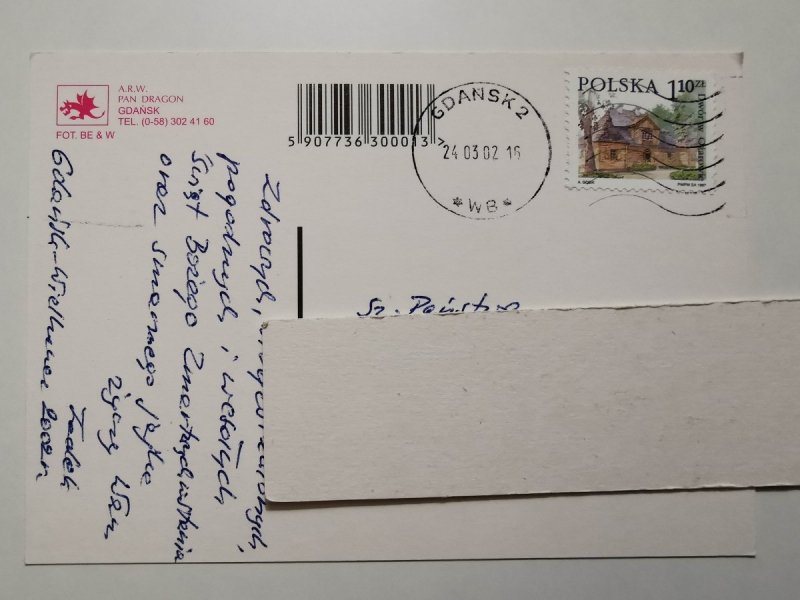 A.R.W.
PAN DRAGON
GDAŃSK
TEL. (0-58) 302 41 60
FOT. BE & W
5 907736 300013 >
GDAŃSK 2
24.03.02.16
* WB *
POLSKA 1,10 ZŁ
A. GOSIK
PWPW SA 1997
Sz. Państwo
Zdrowych,
pogodnych i wesołych
Świąt Bożego Zmartwychwstania
oraz smacznego Jajka
życzy Wam
Tadek
Gdańsk-Wielkanoc 2002r